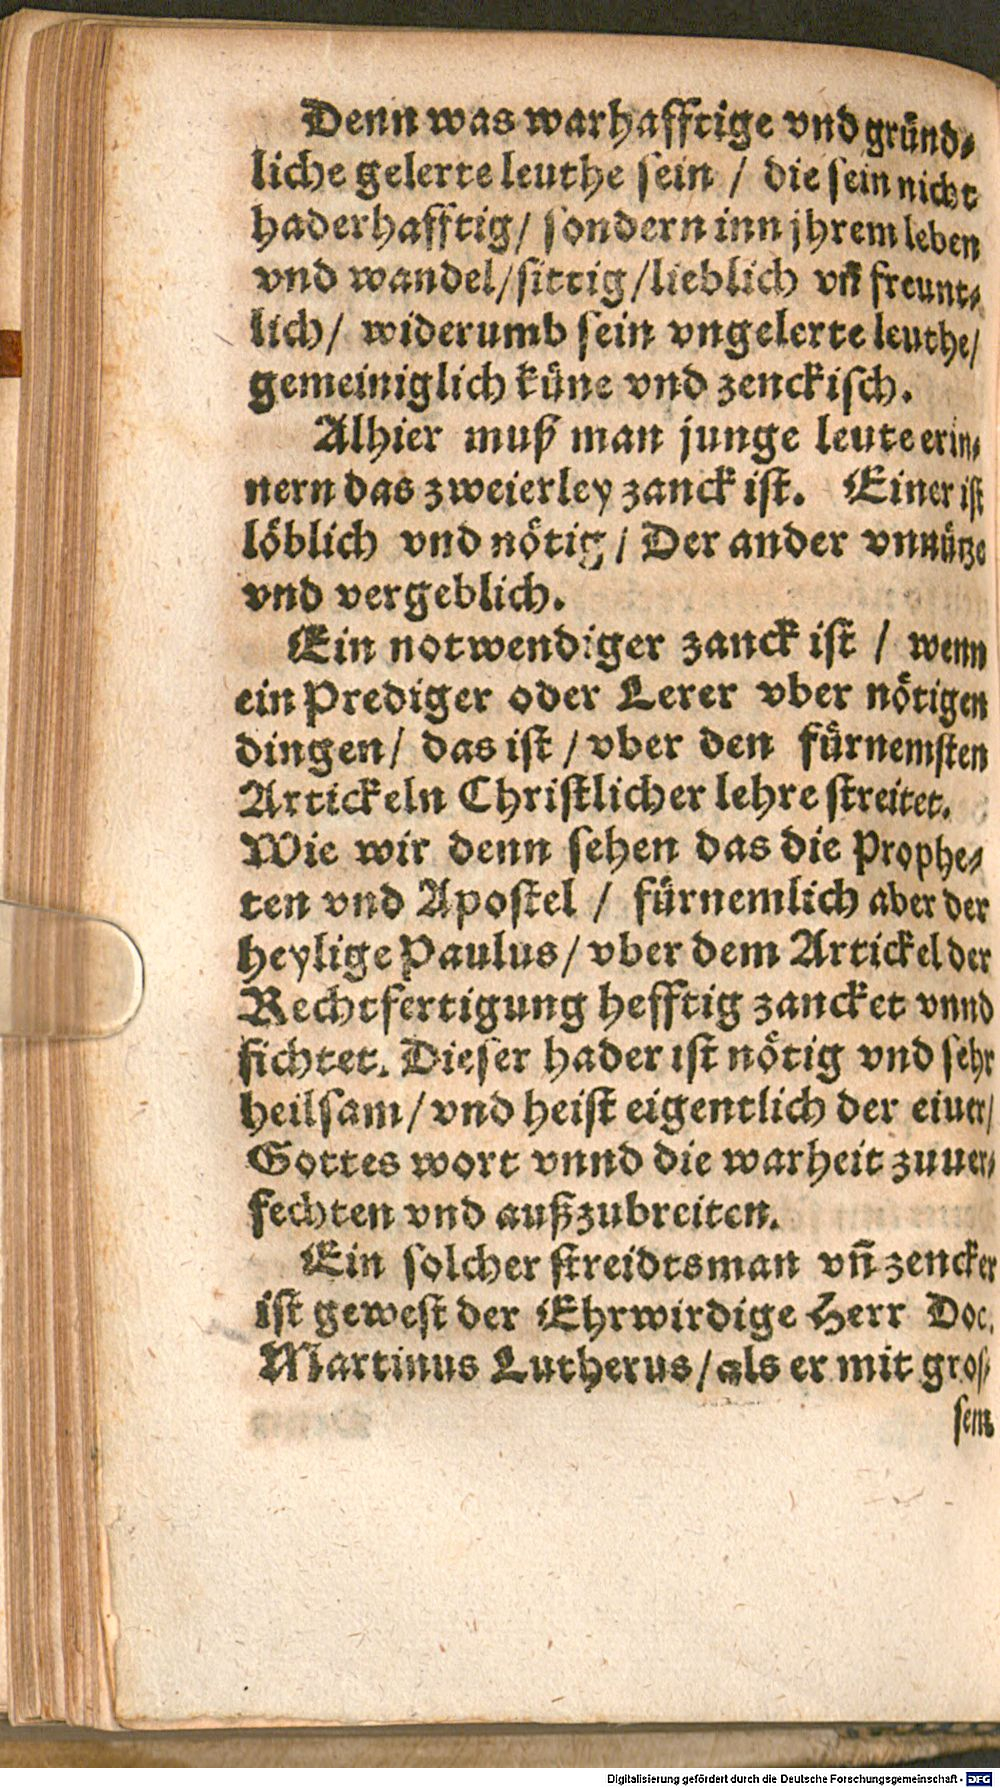 Denn was warhafftige vnd gründ⸗
liche gelerte leuthe sein / die sein nicht
haderhafftig / sondern inn jhrem leben
vnd wandel / sittig / lieblich vñ freunt⸗
lich / widerumb sein vngelerte leuthe /
gemeiniglich küne vnd zenckisch.
Alhier muß man junge leute erin⸗
nern das zweierley zanck ist. Einer ist
löblich vnd nötig / Der ander vnnütze
vnd vergeblich.
Ein notwendiger zanck ist / wenn
ein Prediger oder Lerer vber nötigen
dingen / das ist / vber den fürnemsten
Artickeln Christlicher lehre streitet.
Wie wir denn sehen das die Prophe⸗
ten vnd Apostel / fürnemlich aber der
heylige Paulus / vber dem Artickel der
Rechtfertigung hefftig zancket vnnd
fichtet. Dieser hader ist nötig vnd sehr
heilsam / vnd heist eigentlich der eiuer /
Gottes wort vnnd die warheit zuuer⸗
fechten vnd außzubreiten.
Ein solcher streidtsman vñ zencker
ist gewest der Ehrwirdige Herr Doc.
Martinus Lutherus / als er mit gros⸗
sem
Digitalisierung gefördert durch die Deutsche Forschungsgemeinschaft - DFG